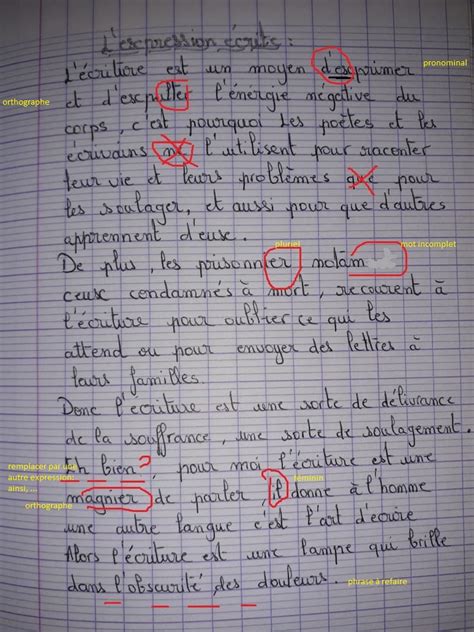 L'expression écrite :
L'écriture est un moyen d'esprimer
pronominal
et d'escpller l'énergie négative du
orthographe
corps, c'est pourquoi les poètes et les
écrivains ne l'utilisent pour raconter
leur vie et leurs problèmes que pour
les soulager, et aussi pour que d'autres
apprennent d'euse.
pluriel
mot incomplet
De plus, les prisonnier notam
ceuse condamnés à mort, recourent à
l'écriture pour oublier ce qui les
attend ou pour envoyer des lettres à
leurs familles.
Donc l'écriture est une sorte de délivrance
de la souffrance, une sorte de soulagement.
Eh bien ?, pour moi l'écriture est une
remplacer par une
autre expression:
ainsi, ...
féminin
magnier de parler il donne à l'homme
orthographe
une autre langue c'est l'art d'écrire
Alors l'écriture est une lampe qui brille
dans l'obscurité des douleurs.
phrase à refaire